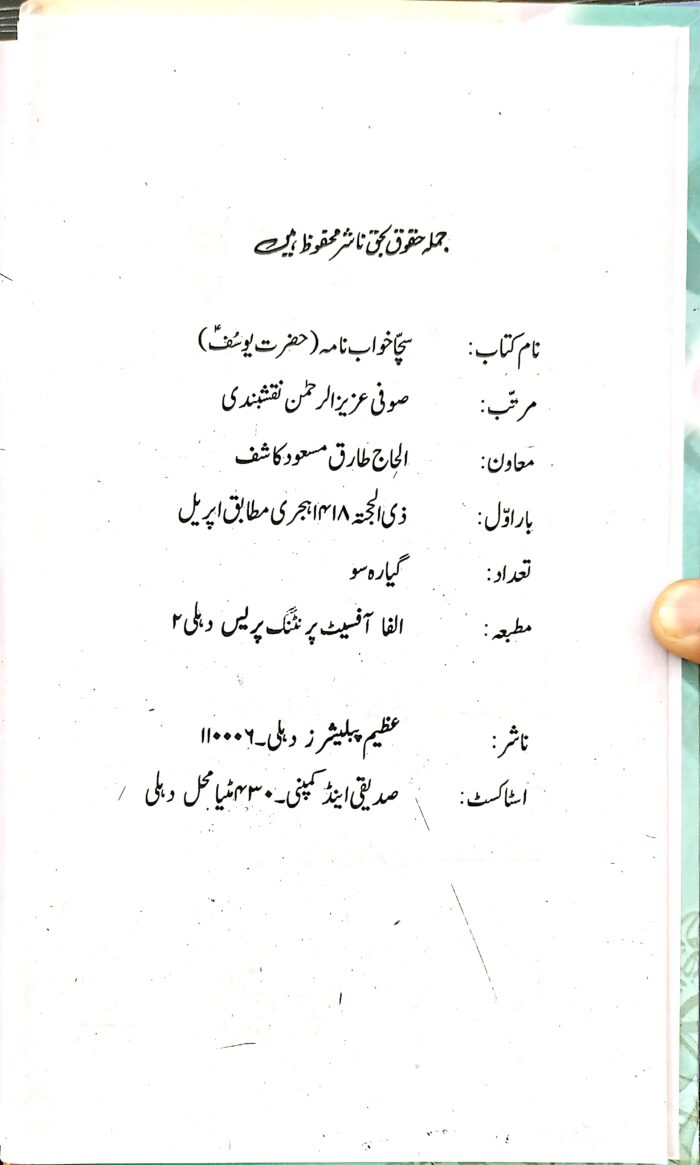 جملہ حقوق بحق ناشر محفوظ ہیں
نام کتاب: سچّا خواب نامہ (حضرت یوسُفؑ)
مرتّب: صوفی عزیز الرحمٰن نقشبندی
معاون: الحاج طارق مسعود کاشف
بار اوّل: ذی الحجتہ ۱۴۱۸ ہجری مطابق اپریل
تعداد: گیارہ سو
مطبعہ: الفا آفسیٹ پرنٹنگ پریس دہلی ۲
ناشر: عظیم پبلیشرز دہلی۔۱۱۰۰۰۶
اسٹاکسٹ: صدیقی اینڈ کمپنی۔۴۳۰ مٹیا محل دہلی
۱